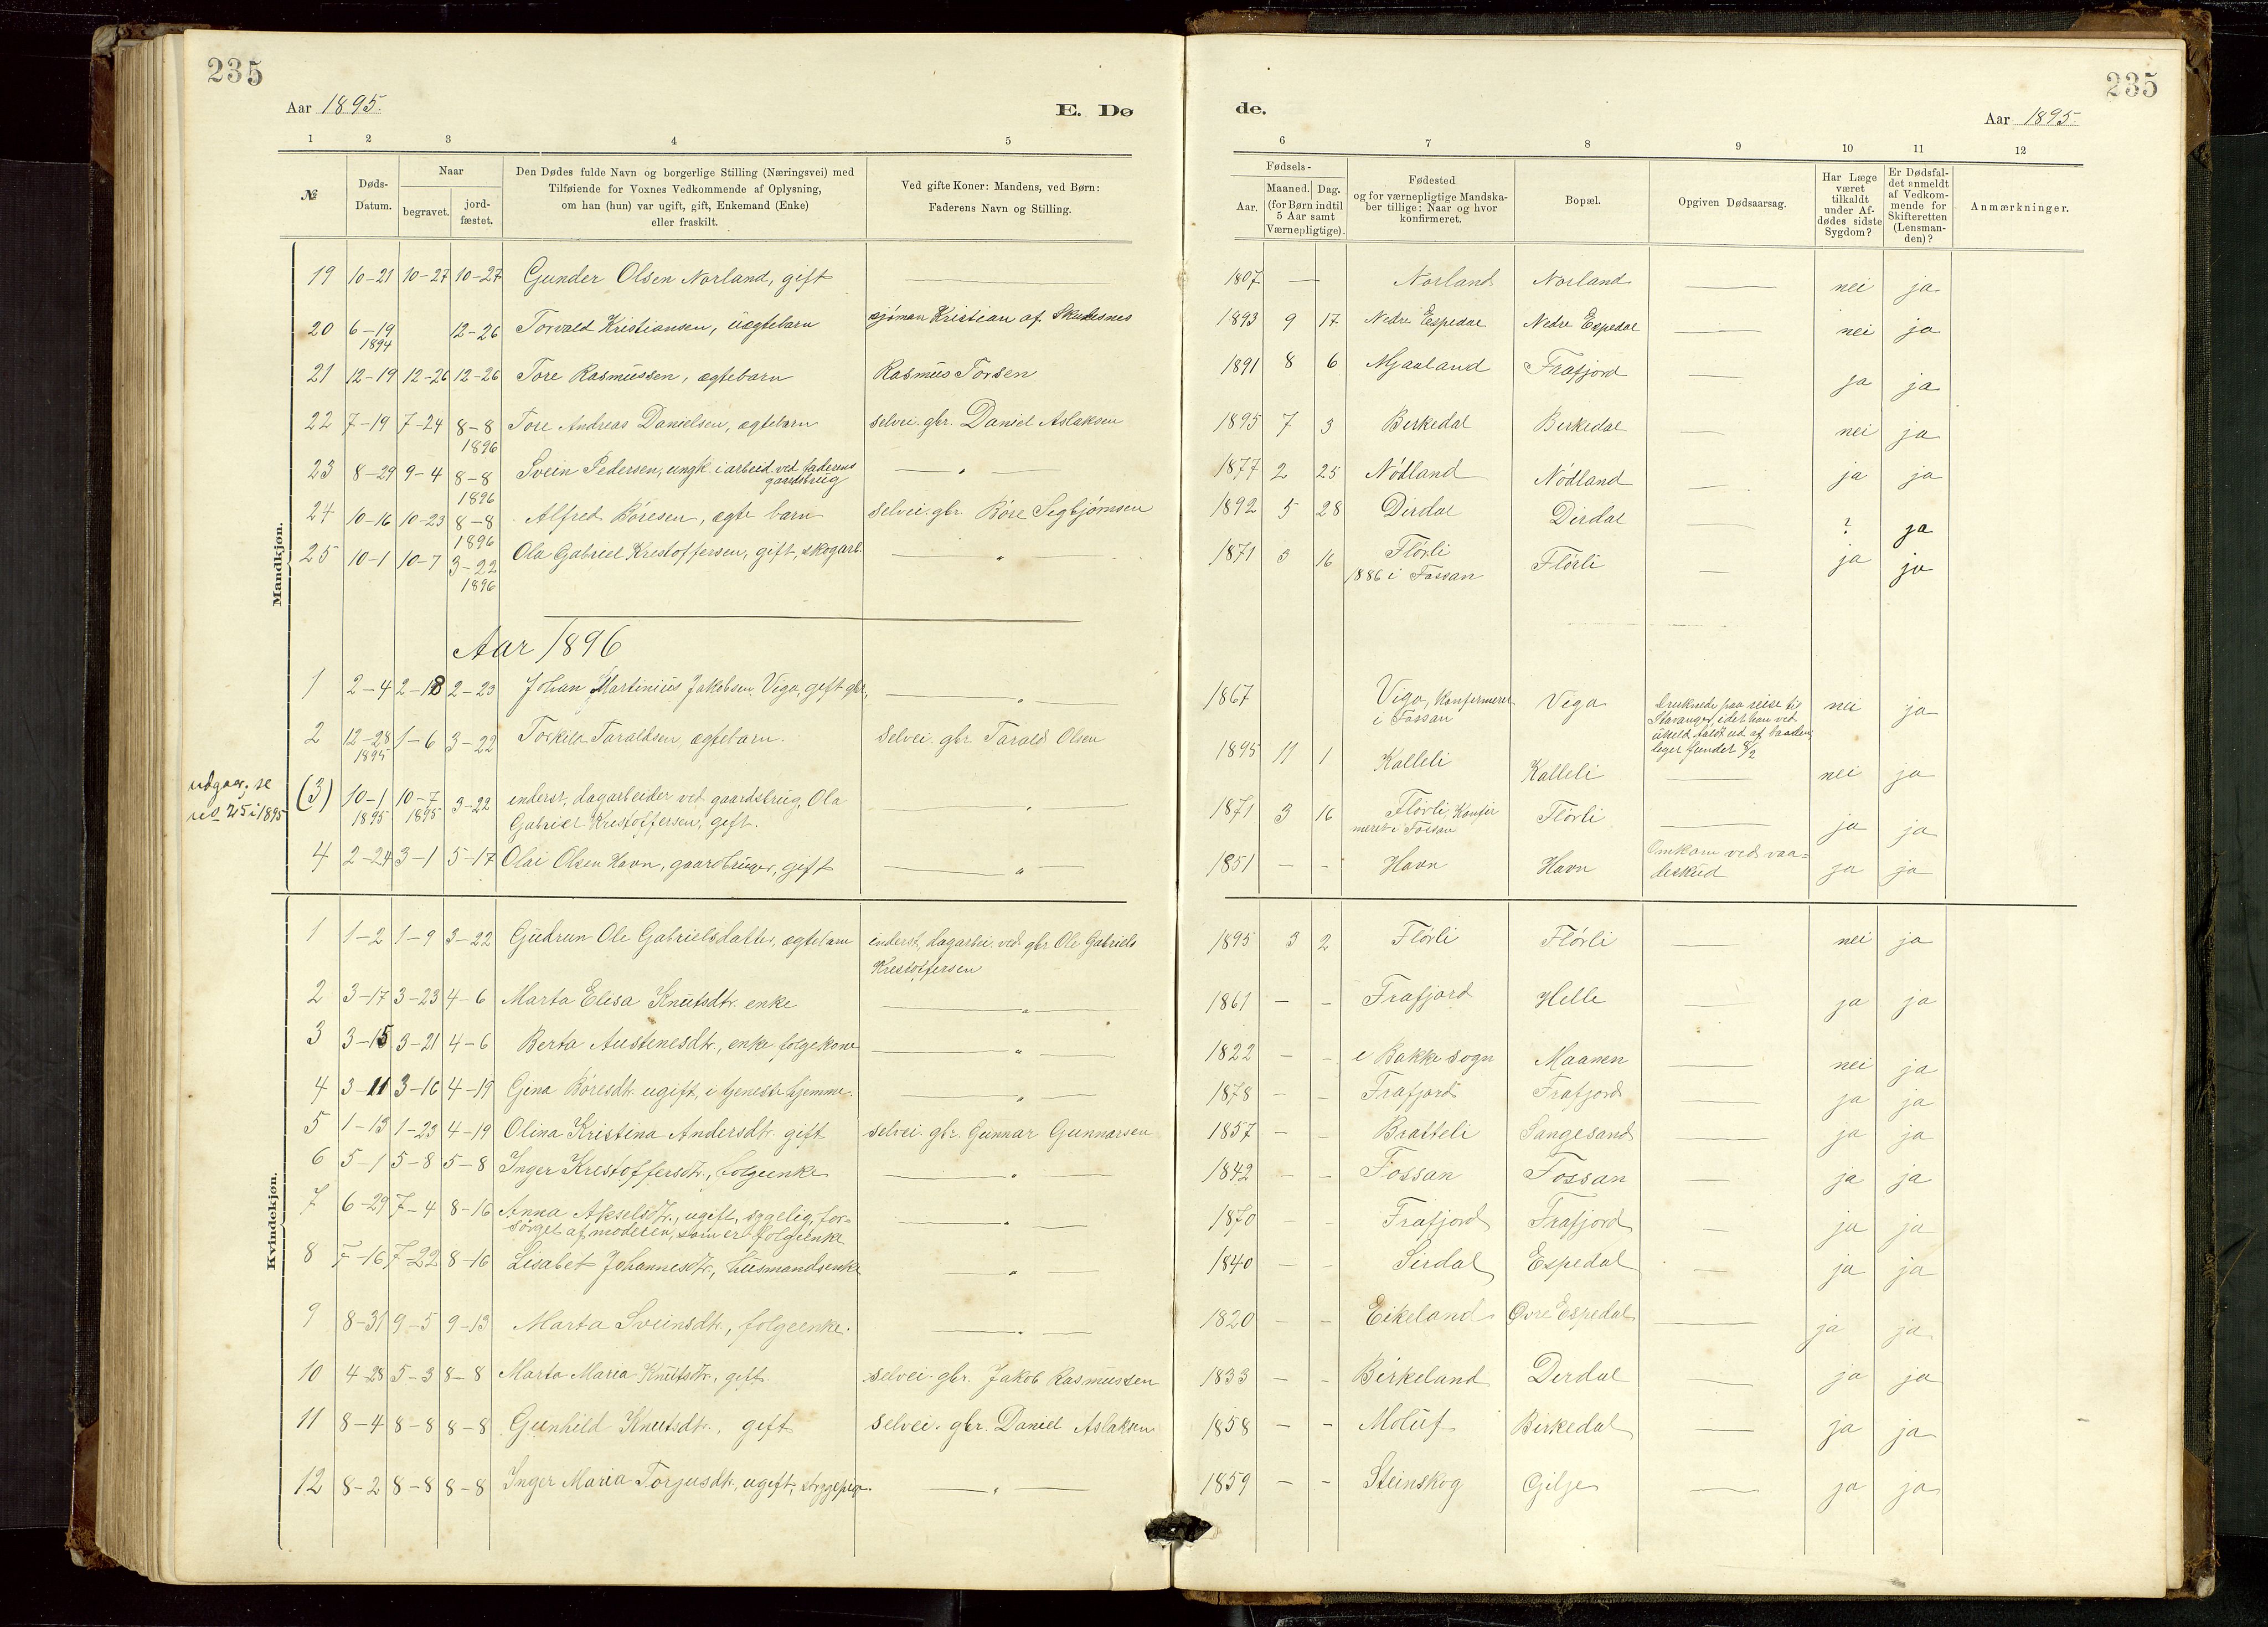 235
235
Aar 1895.
E. Dø
de.
Aar 1895.
1 2 3 4 5
6 7 8 9 10 11 12
№
Døds-Datum.
Naar
begravet.
jord-fæstet.
Den Dødes fulde Navn og borgerlige Stilling (Næringsvei) med
Tilføiende for Voxnes Vedkommende af Oplysning,
om han (hun) var ugift, gift, Enkemand (Enke)
eller fraskilt.
Ved gifte Koner: Mandens, ved Børn:
Faderens Navn og Stilling.
Fødsels-
Aar.
Maaned. Dag.
(for Børn indtil
5 Aar samt
Værnepligtige).
Fødested
og for værnepligtige Mandska-
ber tillige: Naar og hvor
konfirmeret.
Bopæl.
Opgiven Dødsaarsag.
Har Læge
været
tilkaldt
under Af-
dødes sidste
Sygdom?
Er Dødsfal-
det anmeldt
af Vedkom-
mende for
Skifteretten
(Lensman-
den)?
Anmærkninger.
Mandkjøn.
19 10-21 10-27 10-27 Gunder Olsen Norland, gift — 1807 — Norland Norland — nei ja
20 6-19 1894 12-26 Torvald Kristiansen, uægtebarn sjöman Kristian af Skudesnes 1893 9 17 Nedre Espedal Nedre Espedal — nei ja
21 12-19 12-26 12-26 Tore Rasmussen, ægtebarn Rasmus Torsen 1891 8 6 Mjaaland Frafjord — ja ja
22 7-19 7-24 8-8 1896 Tore Andreas Danielsen, ægtebarn selvei. gbr. Daniel Aslaksen 1895 7 3 Birkedal Birkedal — nei ja
23 8-29 9-4 8-8 1896 Svein Pedersen, ungk. i arbeid ved faderens gaardsbrug — „ 1877 2 25 Nödland Nödland — ja ja
24 10-16 10-23 8-8 1896 Alfred Böresen, ægte barn selvei. gbr. Böre Segbjörnsen 1892 5 28 Dirdal Dirdal — ? ja
25 10-1 10-7 3-22 1896 Ola Gabriel Kristoffersen, gift, skogarb. — „ — 1871 3 16 Flörli 1886 i Fossan Flörli — ja ja
Aar 1896
1 2-4 2-18 2-23 Johan Martinius Jakobsen Viga, gift gbr, — „ — 1867 Viga, Konfirmeret i Fossan Viga Druknede paa reise til Stavanger, idet han ved uheld faldt ud af baaden, leget fundet 8/2 nei ja
2 12-28 1895 1-6 3-22 Torkild Taraldsen, ægtebarn. selvei. gbr Tarald Olsen 1895 11 1 Kalleli Kalleli — nei ja
udgaar, se
no 25 i 1895
(3) 10-1 1895 10-7 1895 3-22 inderst, dagarbeider ved gaardsbrug, Ola
Gabriel Kristoffersen, gift. — „ — 1871 3 16 Flörli, Konfirmeret i Fossan Flörli — ja ja
4 2-24 3-1 5-17 Olai Olsen Havn, gaardbruger, gift — „ — 1851 - - Havn Havn Omkom ved vaadeskud ja ja
Kvindekjøn.
1 1-2 1-9 3-22 Gudrun Ole Gabrielsdatter, ægtebarn inderst, dagarbei. ved gbr Ole Gabriels Kristoffersen 1895 3 2 Flörli Flörli — nei ja
2 3-17 3-23 4-6 Marta Elisa Knutsdtr. enke — „ — 1861 - - Frafjord Helle — ja ja
3 3-15 3-21 4-6 Berta Austensdtr., enke folgekone — „ — 1822 - - i Bakke sogn Maanen — nei ja
4 3-11 3-16 4-19 Gina Böresdtr. ugift, i tjeneste hjemme. — „ — 1878 - - Frafjord Frafjord — ja ja
5 1-13 1-23 4-19 Olina Kristina Andersdtr. gift selvei. gbr. Gunnar Gunnarsen 1857 - - Bratteli Sangesand — ja ja
6 5-1 5-8 5-8 Inger Kristoffersdtr., folgeenke — „ — 1842 - - Fossan Fossan — ja ja
7 6-29 7-4 8-16 Anna Akselsdtr., ugift, sygelig, for-
sörget af moderen, som er folgeenke — „ — 1870 - Frafjord Frafjord — ja ja
8 7-16 7-22 8-16 Lisabet Johannesdtr., husmandsenke — „ — 1840 - - Sirdal Espedal — ja ja
9 8-31 9-5 9-13 Marta Sveinsdtr., folgeenke. — „ — 1820 - - Eikeland Øvre Espedal — ja ja
10 4-28 5-3 8-8 Marta Maria Knutsdtr., gift selvei. gbr. Jakob Rasmussen 1833 - - Birkeland Dirdal — ja ja
11 8-4 8-8 8-8 Gunhild Knutsdtr., gift selvei. gbr. Daniel Aslaksen 1858 - - Moluf Birkedal — ja ja
12 8-2 8-8 8-8 Inger Maria Torjusdtr., ugift, strygepige. — „ — 1859 - - Steinskog Gilje — ja ja